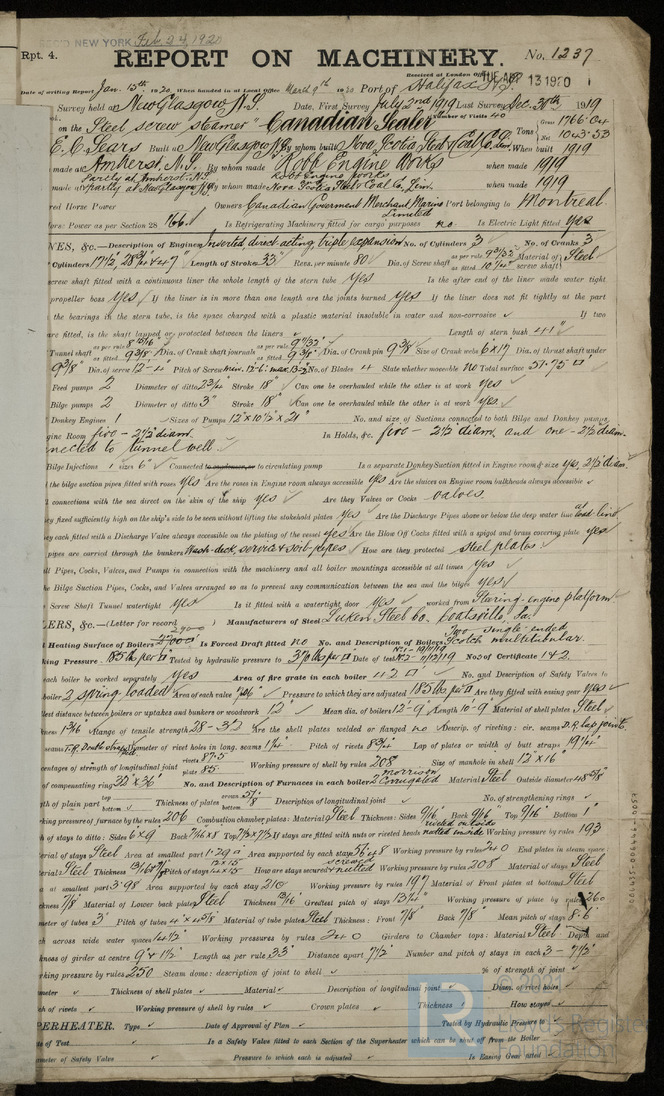 REC'D NEW YORK Feb 24, 1920
Rpt. 4.
REPORT ON MACHINERY.
No. 1237
Received at London Office TUE. APR 13 1920
Date of writing Report Jan. 15th 1920 When handed in at Local Office March 9th 1920 Port of Halifax N.S.
Survey held at New Glasgow N.S. Date, First Survey July 2nd 1919 Last Survey Dec. 30th 1919
Number of Visits 40
on the Steel screw steamer "Canadian Sealer" Tons Gross 1766.04
Net 1043.53
E. C. Sears Built at New Glasgow N.S. By whom built Nova Scotia Steel & Coal Co. Lim When built 1919
made at Amherst, N.S. By whom made Robb Engine Works when made 1919
partly at Amherst, N.S. Robb Engine Works
made at partly at New Glasgow N.S. By whom made Nova Scotia Steel & Coal Co., Lim. when made 1919
red Horse Power Owners Canadian Government Merchant Marine Limited Port belonging to Montreal
Power as per Section 28 166. Is Refrigerating Machinery fitted for cargo purposes no. Is Electric Light fitted Yes
NES, &c.—Description of Engines Inverted direct acting, triple expansion No. of Cylinders 3 No. of Cranks 3
Cylinders 17½, 28¾ & 47" Length of Stroke 33" Revs. per minute 80 Dia. of Screw shaft as per rule 9 23/32" as fitted 10¼" Material of screw shaft Steel
screw shaft fitted with a continuous liner the whole length of the stern tube Yes Is the after end of the liner made water tight
propeller boss yes If the liner is in more than one length are the joints burned yes If the liner does not fit tightly at the part
the bearings in the stern tube, is the space charged with a plastic material insoluble in water and non-corrosive If two
are fitted, is the shaft lapped or protected between the liners Length of stern bush 41"
Tunnel shaft as fitted 9⅜ Dia. of Crank shaft journals as per rule 9 11/32" as fitted 9⅜" Dia. of Crank pin 9⅜ Size of Crank webs 6 x 17 Dia. of thrust shaft under
9⅜" Dia. of screw 12-4" Pitch of Screw No. of Blades 4 State whether moveable no Total surface 51.75
Feed pumps 2 Diameter of ditto 2¾" Stroke 18" Can one be overhauled while the other is at work yes
Bilge pumps 2 Diameter of ditto 3" Stroke 18" Can one be overhauled while the other is at work yes.
Donkey Engines 1 Sizes of Pumps 12" x 10½" x 21" No. and size of Suctions connected to both Bilge and Donkey pumps
gine Room five - 2½" diam. In Holds, &c. five - 2½" diam. and one - 2½" diam.
nected to tunnel well.
Bilge Injections 1 sizes 6" Connected to condenser, or to circulating pump Is a separate Donkey Suction fitted in Engine room & size yes, 2½" diam.
the bilge suction pipes fitted with roses yes Are the roses in Engine room always accessible yes Are the sluices on Engine room bulkheads always accessible
connections with the sea direct on the skin of the ship yes Are they Valves or Cocks valves.
ey fixed sufficiently high on the ship's side to be seen without lifting the stokehold plates yes Are the Discharge Pipes above or below the deep water line at load line
ey each fitted with a Discharge Valve always accessible on the plating of the vessel yes Are the Blow Off Cocks fitted with a spigot and brass covering plate yes
pipes are carried through the bunkers Wash-deck, service & soil-pipes How are they protected steel plates.
ll Pipes, Cocks, Valves, and Pumps in connection with the machinery and all boiler mountings accessible at all times yes
he Bilge Suction Pipes, Cocks, and Valves arranged so as to prevent any communication between the sea and the bilges yes
Screw Shaft Tunnel watertight yes Is it fitted with a watertight door yes worked from Staring-engine platform
LERS, &c.—(Letter for record ) Manufacturers of Steel Luken Steel Co., Coatsville, Pa.
Heating Surface of Boilers Is Forced Draft fitted no No. and Description of Boilers Two Single-ended Scotch multitubular.
king Pressure 185 lbs per Tested by hydraulic pressure to 370 lbs per Date of test No. of Certificate 142
each boiler be worked separately yes Area of fire grate in each boiler 42 No. and Description of Safety Valves to
boiler 2 spring loaded Area of each valve Pressure to which they are adjusted 185 lbs. per Are they fitted with easing gear yes
lest distance between boilers or uptakes and bunkers or woodwork 12" Mean dia. of boilers 12'-9" Length 10'-9 Material of shell plates Steel
Range of tensile strength 28-32 Are the shell plates welded or flanged no Descrip. of riveting: cir. seams D.R. lap joints.
seams T.R. Double straps Diameter of rivet holes in long. seams 1¼" Pitch of rivets 8¾" Lap of plates or width of butt straps 19¼"
centages of strength of longitudinal joint rivets 87.5 plate 85. Working pressure of shell by rules 208 Size of manhole in shell 12" x 16"
of compensating ring 32" x 36" No. and Description of Furnaces in each boiler 2 morrison Corrugated Material Steel Outside diameter 48⅝"
gth of plain part top bottom Thickness of plates crown bottom Description of longitudinal joint No. of strengthening rings
rking pressure of furnace by the rules 206 Combustion chamber plates: Material Steel Thickness: Sides 9/16" Back 9/16" Top 9/16" Bottom 1"
ch of stays to ditto: Sides 6 x 9" Back 7⅞ x 8 Top 7½ x 7½ If stays are fitted with nuts or riveted heads riveted outside nutted inside Working pressure by rules 193
erial of stays Steel Area at smallest part 1.29 Area supported by each stay 56.48 Working pressure by rules 240 End plates in steam space:
erial Steel Thickness Pitch of stays How are stays secured screwed & nutted Working pressure by rules 208 Material of stays Steel
a at smallest part 3.98 Area supported by each stay 210 Working pressure by rules 197 Material of Front plates at bottom Steel
ckness ⅞" Material of Lower back plate Steel Thickness 13/16" Greatest pitch of stays 13¼" Working pressure of plate by rules 260
meter of tubes 3" Pitch of tubes 4" x 4⅝" Material of tube plates Steel Thickness: Front ⅞" Back ⅞" Mean pitch of stays 8.6"
ch across wide water spaces 14½" Working pressures by rules 240 Girders to Chamber tops: Material Steel Depth and
kness of girder at centre 9" x 1½" Length as per rule 33" Distance apart 7½" Number and pitch of stays in each 3 - 7½"
rking pressure by rules 250 Steam dome: description of joint to shell % of strength of joint
meter Thickness of shell plates Material Description of longitudinal joint Diam. of rivet holes
ch of rivets Working pressure of shell by rules Crown plates Thickness How stayed
PERHEATER. Type Date of Approval of Plan Tested by Hydraulic Pressure to
te of Test Is a Safety Valve fitted to each Section of the Superheater which can be shut off from the Boiler
meter of Safety Valve Pressure to which each is adjusted Is Easing Gear fitted
© 2021
Lloyd's Register
Foundation